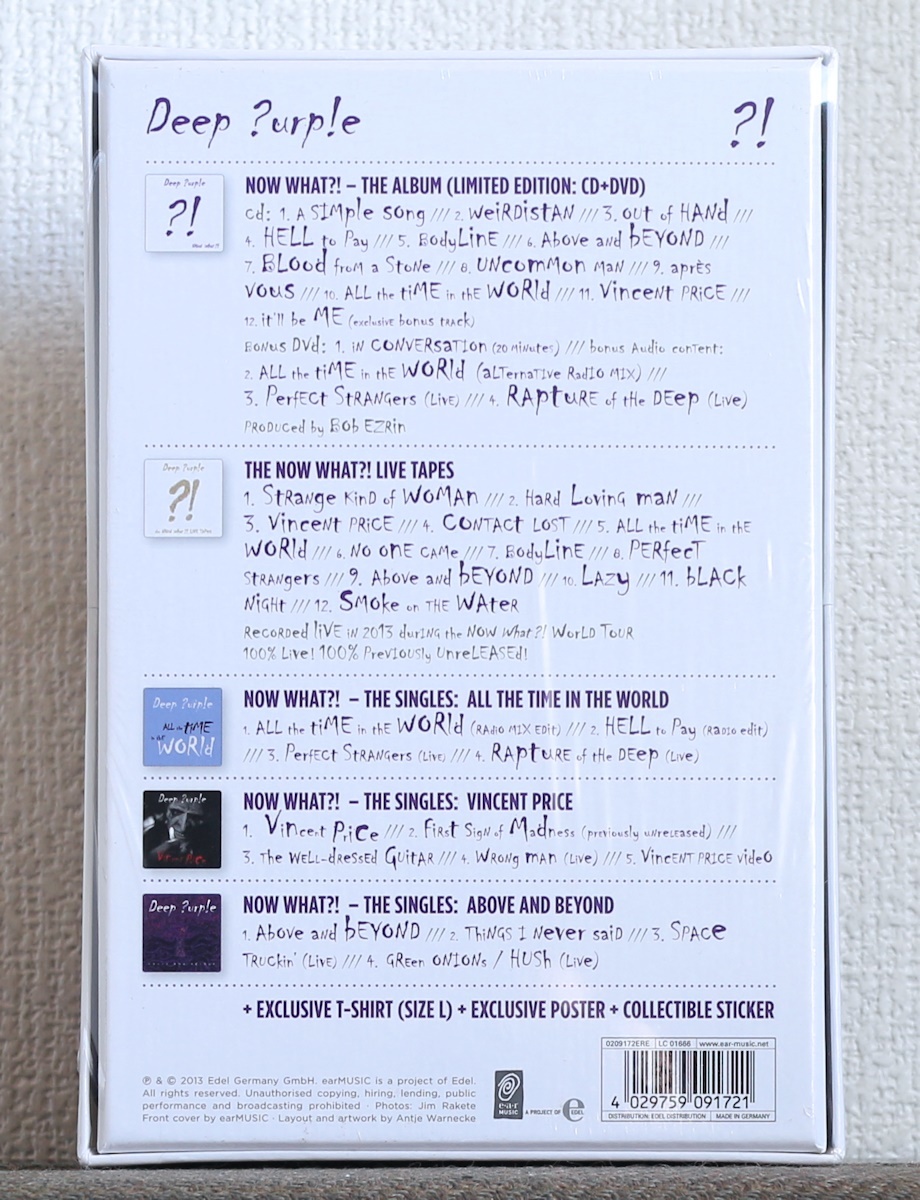 Deep ?urp!e
?!
Deep ?urple
?!
NOW what ?!
NOW WHAT?! – THE ALBUM (LIMITED EDITION: CD+DVD)
cd: 1. A SIMple song /// 2. WeiRDistAN /// 3. out of HANd ///
4. HELL to Pay /// 5. BodyLinE /// 6. Above and bEYOND ///
7. BLOod froM a StoNe /// 8. UNcomMon maN /// 9. après
vous /// 10. ALL the tiME in thE WORld /// 11. VinceNt PRiCE ///
12. it'll be ME (exclusive bonus tRAck)
BONUS DVd: 1. iN CONVERSaTIon (20 MiNutes) /// bonus Audio conTenT:
2. ALL the tiME in thE WORld (aLTernaTIVe RadIO MIX) ///
3. PerfECt StRANGers (LivE) /// 4. RAptuRE of tHe DEep (Live)
PRODUCED by BOB EZRin
Deep ?urple
?!
THE NOW WHAT?! LIVE TAPES
1. StRaNge KinD of WOMAn /// 2. HaRd LoviNG maN ///
3. VinceNt PRiCE /// 4. CONtACt LOST /// 5. ALL the tiME in thE
WORld /// 6. NO onE CAMe /// 7. BodyLinE /// 8. PERfecT
StRANgers /// 9. Above and bEYOND /// 10. LAZy /// 11. bLACk
NiGHt /// 12. SMoke on THE WAteR
RecoRDed liVE iN 2013 durING the NOW What?! WorLD TOUR
100% Live! 100% PrevIOUSly UnreLEASEd!
Deep ?urp!e
ALL the tiME
in thE
WORld
NOW WHAT?! – THE SINGLES: ALL THE TIME IN THE WORLD
1. ALL the tiME in thE WORld (RAdiO MIX Edit) /// 2. HELL to Pay (RaDIO edit)
/// 3. PerfECt StRANGers (Live) /// 4. RAptuRE of tHe DEep (Live)
Deep ?urp!e
VinCent PriCe
NOW WHAT?! – THE SINGLES: VINCENT PRICE
1. VinCent PriCe /// 2. FiRSt SigN of MadNess (previously uNReleased) ///
3. The WELL-dResSEd GUitAR /// 4. WROng maN (Live) /// 5. VincENT PRICE videO
Deep ?urp!e
NOW WHAT?! – THE SINGLES: ABOVE AND BEYOND
1. Above and bEYOND /// 2. ThiNGS I Never saiD /// 3. SPAce
TRUCkin' (LivE) /// 4. GReen ONIONs / HUSh (Live)
+ EXCLUSIVE T-SHIRT (SIZE L) + EXCLUSIVE POSTER + COLLECTIBLE STICKER
0209172ERE LC 01666 www.ear-music.net
4 029759 091721
DISTRIBUTION: EDEL DISTRIBUTION MADE IN GERMANY
℗ & © 2013 Edel Germany GmbH. earMUSIC is a project of Edel.
All rights reserved. Unauthorised copying, hiring, lending, public
performance and broadcasting prohibited · Photos: Jim Rakete
Front cover by earMUSIC · Layout and artwork by Antje Warnecke
ear MUSIC
A PROJECT OF EDEL